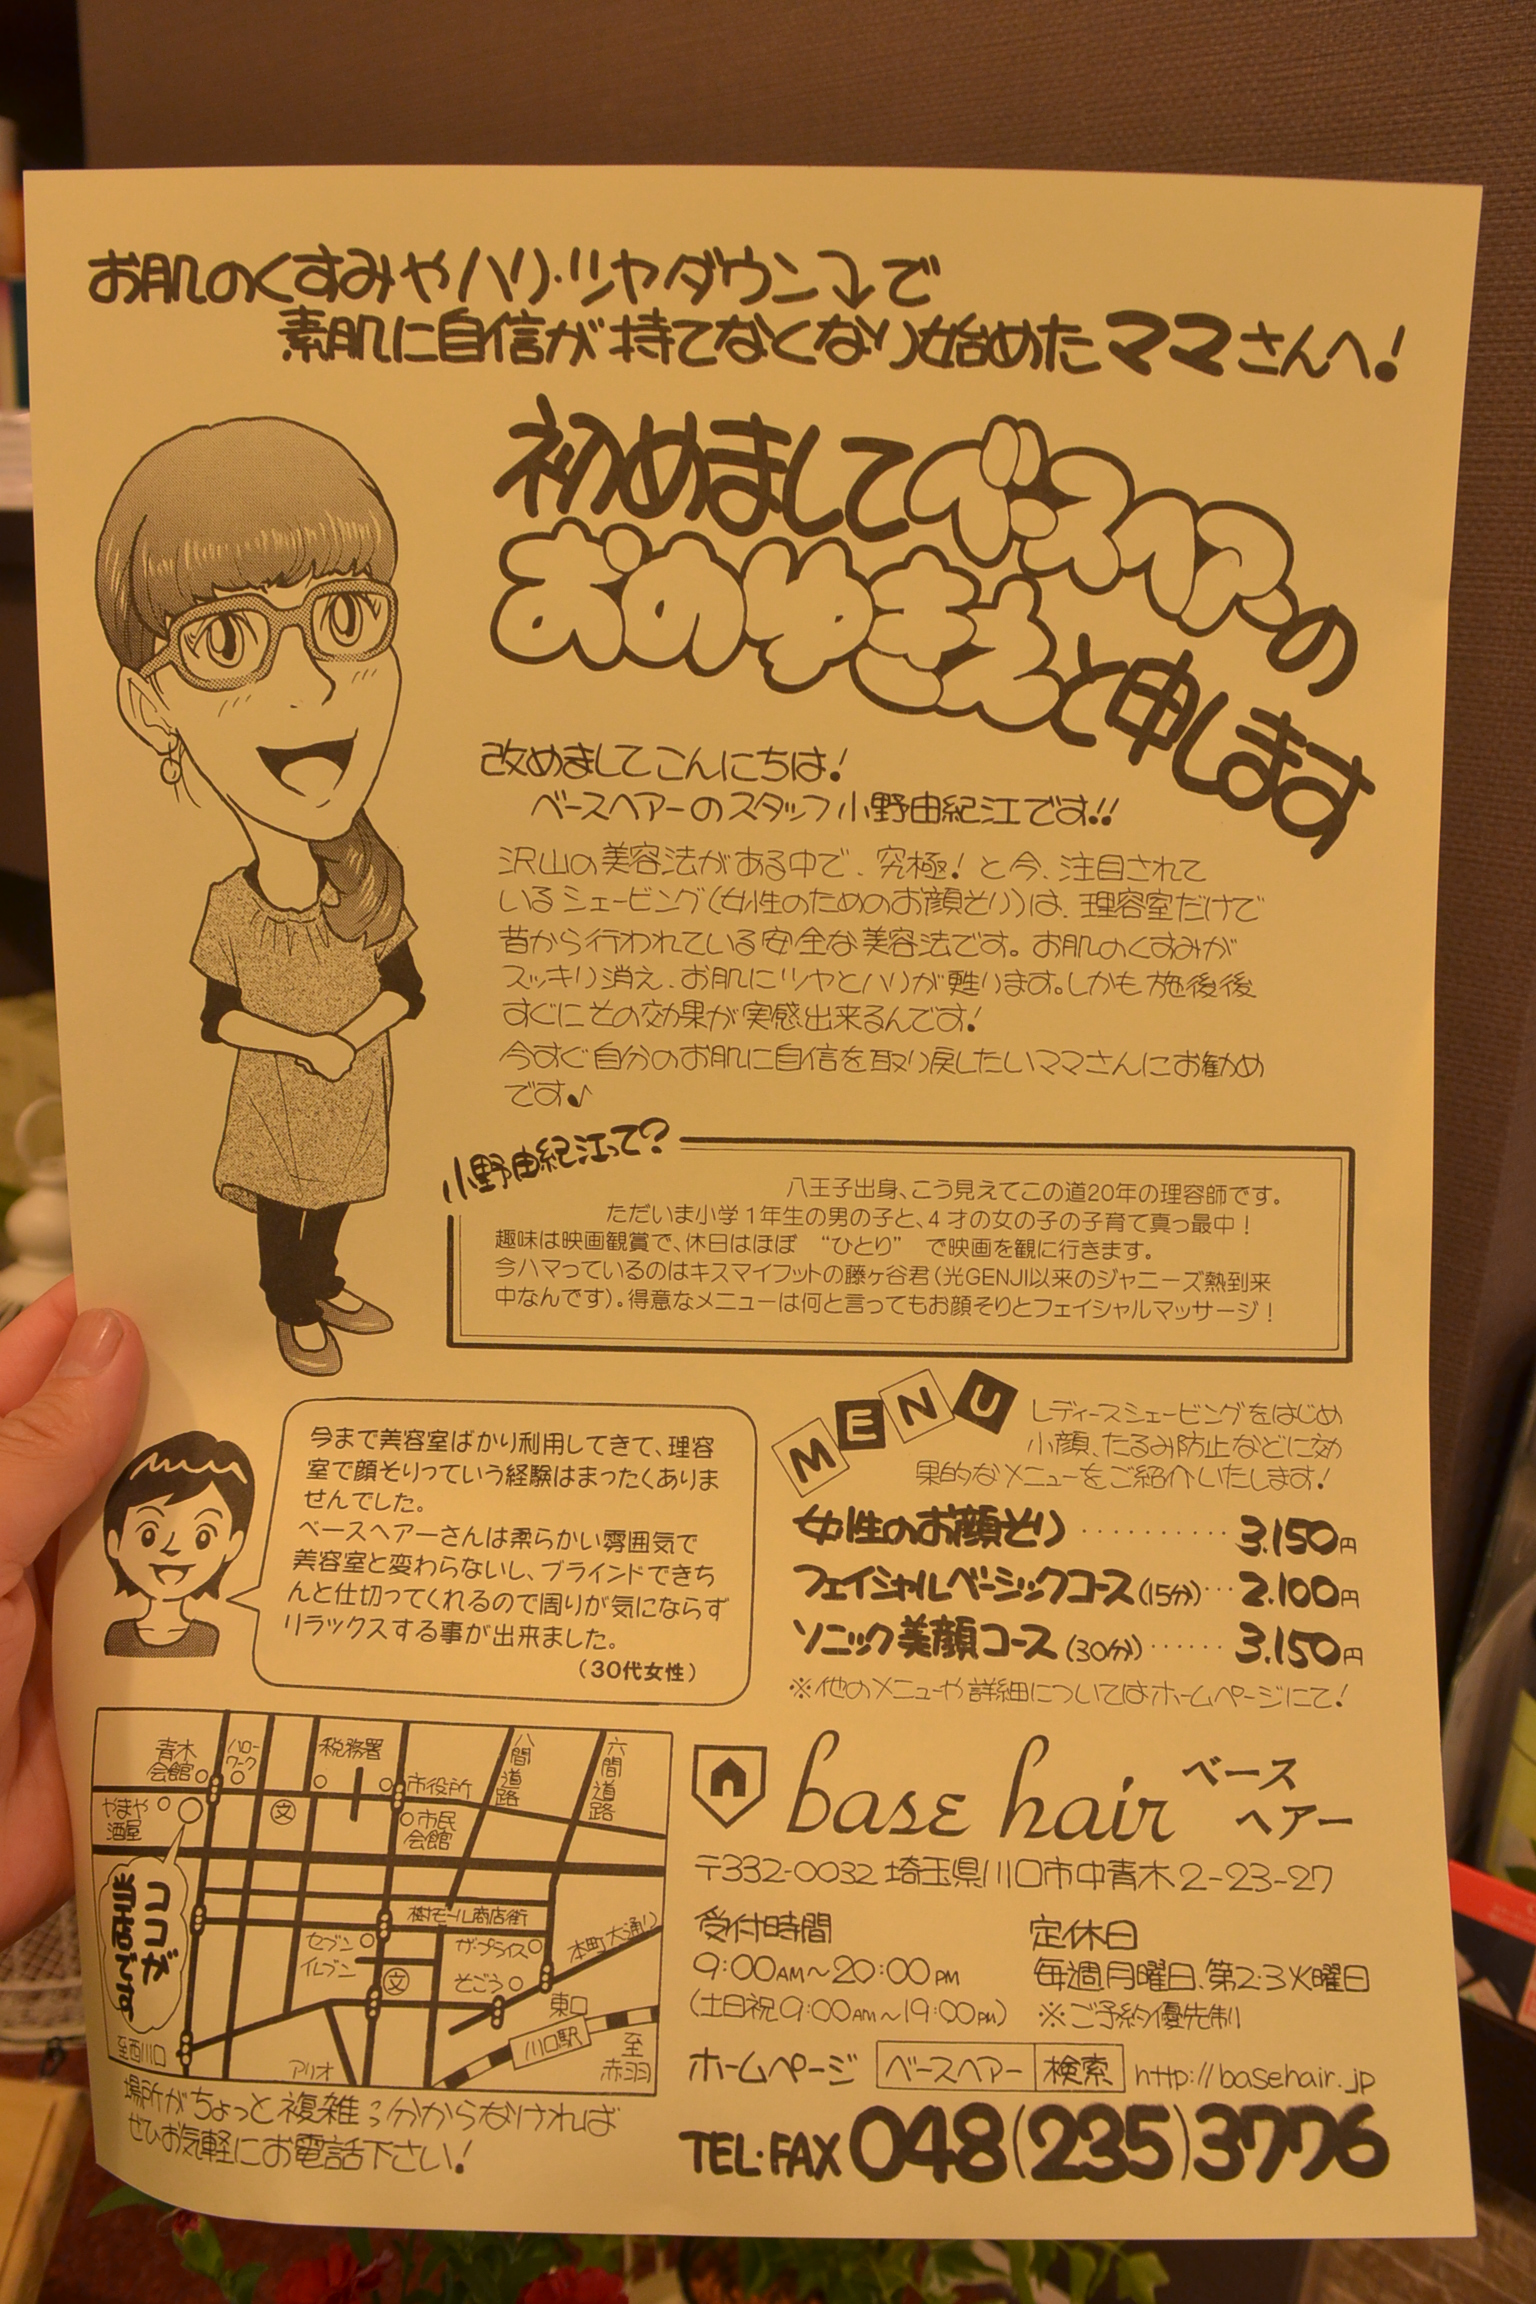 お肌のくすみやハリ・ツヤダウン⤵で
素肌に自信が持てなくなり始めたママさんへ!
初めましてベースヘアーの
おのゆきえと申します
改めましてこんにちは!
ベースヘアーのスタッフ小野由紀江です!!
沢山の美容法がある中で、究極!と今、注目されて
いるシェービング(女性のためのお顔そり)は、理容室だけで
昔から行われている安全な美容法です。お肌のくすみが
スッキリ消え、お肌にツヤとハリが甦ります。しかも施後後
すぐにその効果が実感出来るんです!
今すぐ自分のお肌に自信を取り戻したいママさんにお勧め
です♪
小野由紀江って?
八王子出身、こう見えてこの道20年の理容師です。
ただいま小学1年生の男の子と、4才の女の子の子育て真っ最中!
趣味は映画観賞で、休日はほぼ “ひとり” で映画を観に行きます。
今ハマっているのはキスマイフットの藤ヶ谷君(光GENJI以来のジャニーズ熱到来
中なんです)。得意なメニューは何と言ってもお顔そりとフェイシャルマッサージ!
今まで美容室ばかり利用してきて、理容
室で顔そりっていう経験はまったくありま
せんでした。
ベースヘアーさんは柔らかい雰囲気で
美容室と変わらないし、ブラインドできち
んと仕切ってくれるので周りが気にならず
リラックスする事が出来ました。
(30代女性)
MENU
レディースシェービングをはじめ
小顔、たるみ防止などに効
果的なメニューをご紹介いたします!
女性のお顔そり ·········· 3.150円
フェイシャルベーシックコース(15分)··· 2.100円
ソニック美顔コース(30分)······ 3.150円
※他のメニューや詳細についてはホームページにて!
青木
会館
ハロー
ワーク
税務署
市役所
八間道路
六間道路
やまや
酒屋
文
市民
会館
ココが
当店です
樹モール商店街
セブン
イレブン
ザ・プライス
本町大通り
文
そごう
東口
川口駅
至西川口
アリオ
至
赤羽
場所がちょっと複雑;分からなければ
ぜひお気軽にお電話下さい!
base hair ベース
ヘアー
〒332-0032 埼玉県川口市中青木2-23-27
受付時間
9:00AM~20:00PM
(土日祝9:00AM~19:00PM)
定休日
毎週月曜日、第2・3火曜日
※ご予約優先制
ホームページ ベースヘアー 検索 http://basehair.jp
TEL・FAX 048(235)3776